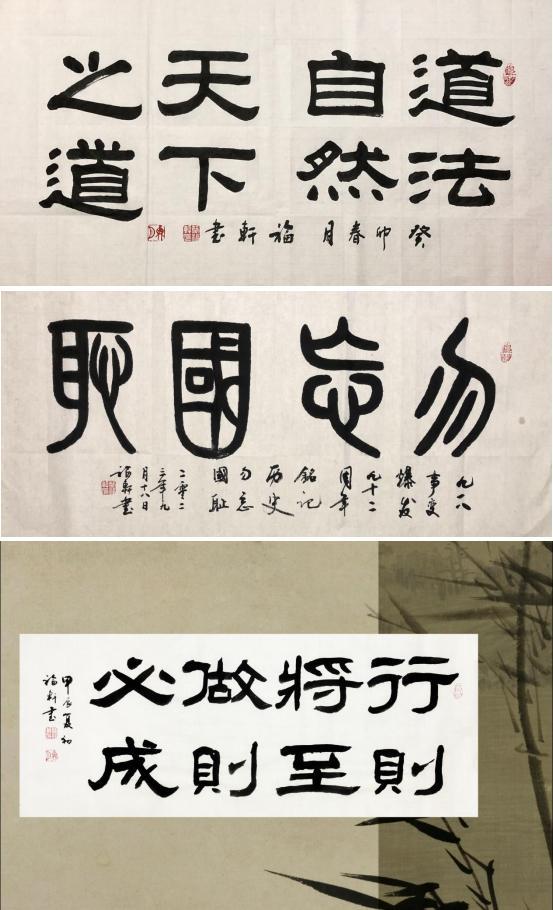 道法
自然
天下
之道
癸卯春月福軒書
勿忘國恥
九一八
事变
爆发
九十二
周年
铭记
历史
勿忘
國耻
二零二
三年九
月十八日
福軒書
行則
將至
做則
必成
甲辰夏初
福軒書